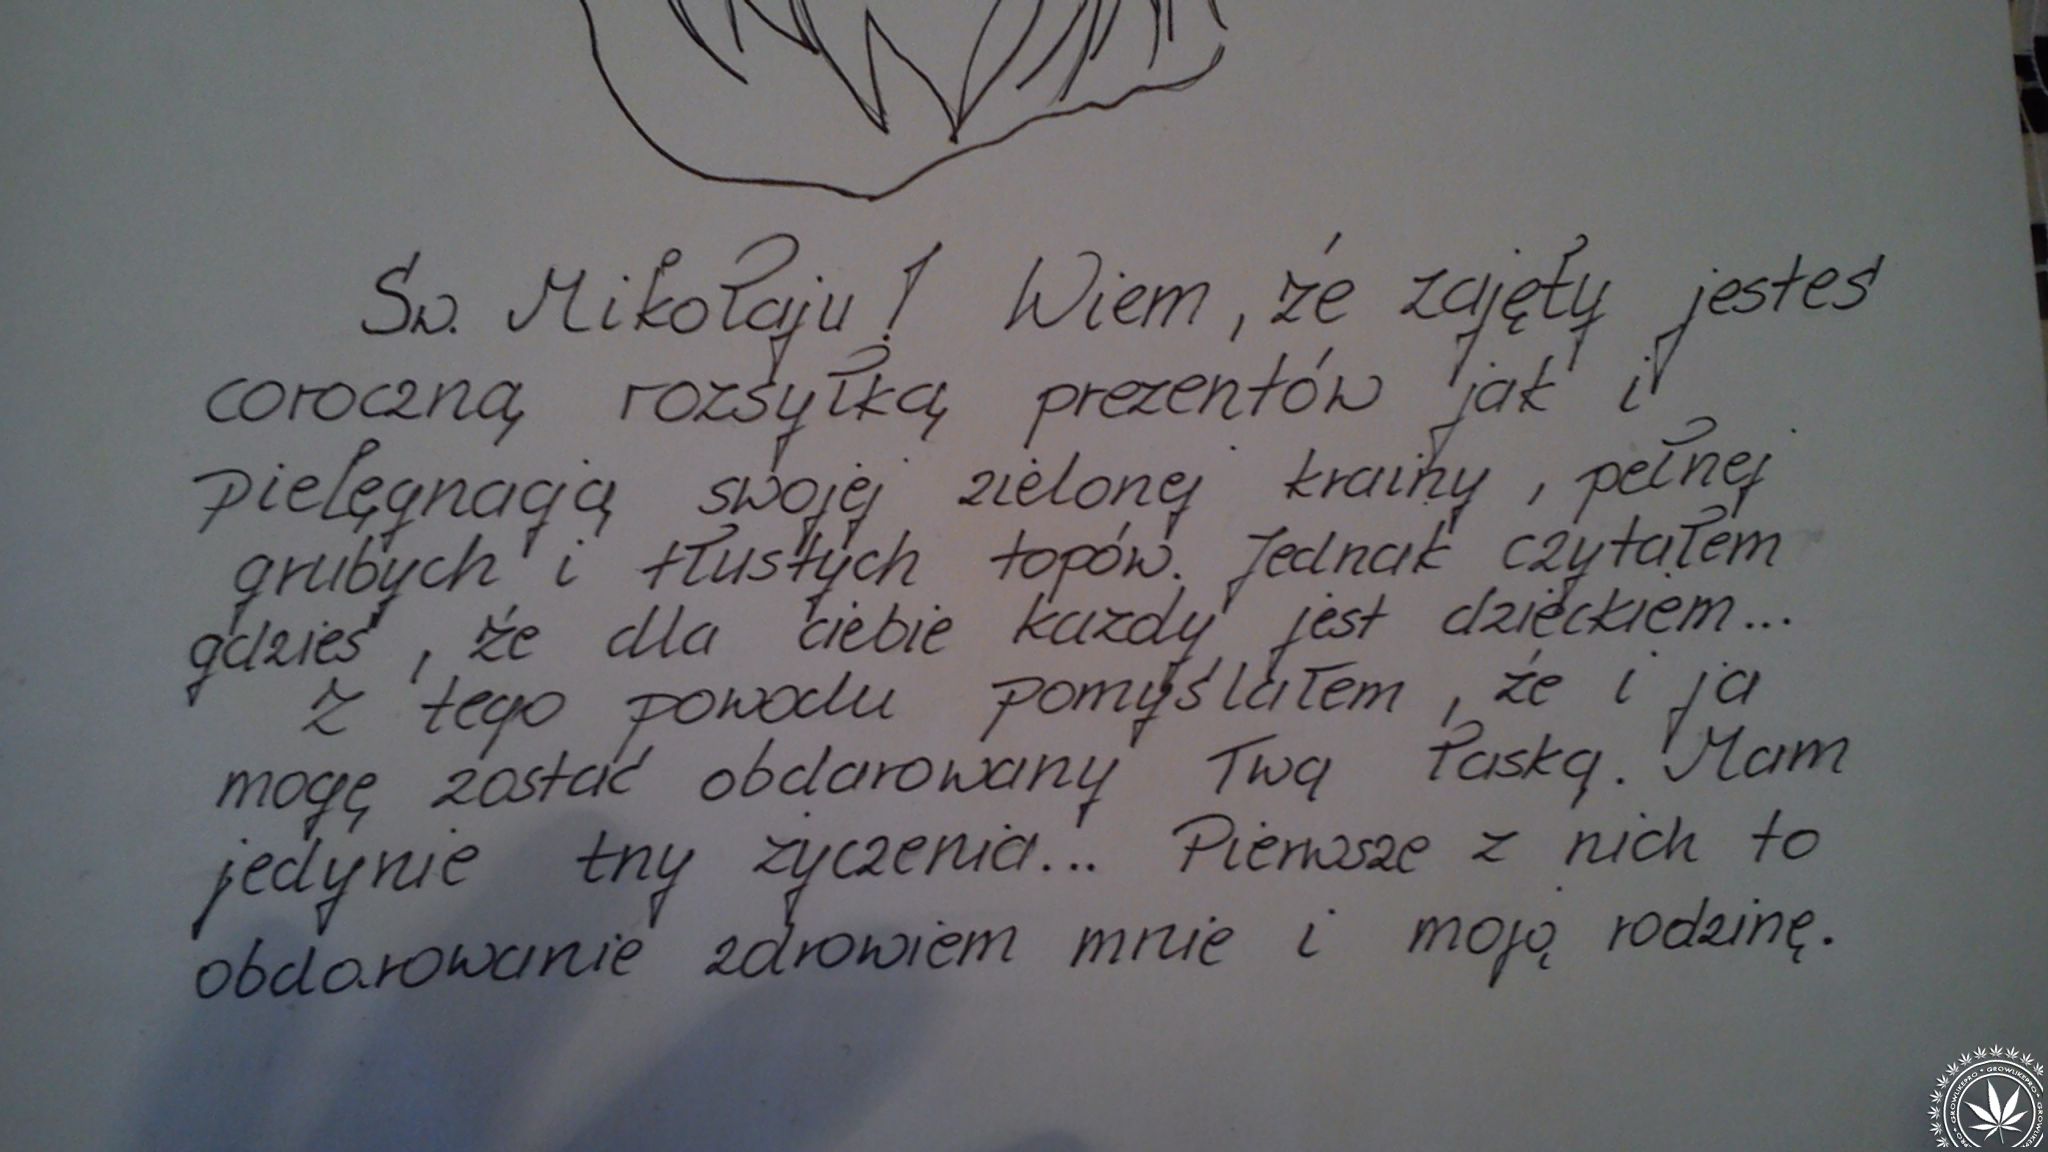 Św. Mikołaju! Wiem, że zajęty jesteś
coroczną rozsyłką prezentów jak i
pielęgnacją swojej zielonej krainy, pełnej
grubych i tłustych topów. Jednak czytałem
gdzieś, że dla ciebie każdy jest dzieckiem...
Z tego powodu pomyślałem, że i ja
mogę zostać obdarowany Twą łaską. Mam
jedynie trzy życzenia... Pierwsze z nich to
obdarowanie zdrowiem mnie i moją rodzinę.
GROWLIKEPRO • GROWLIKEPRO